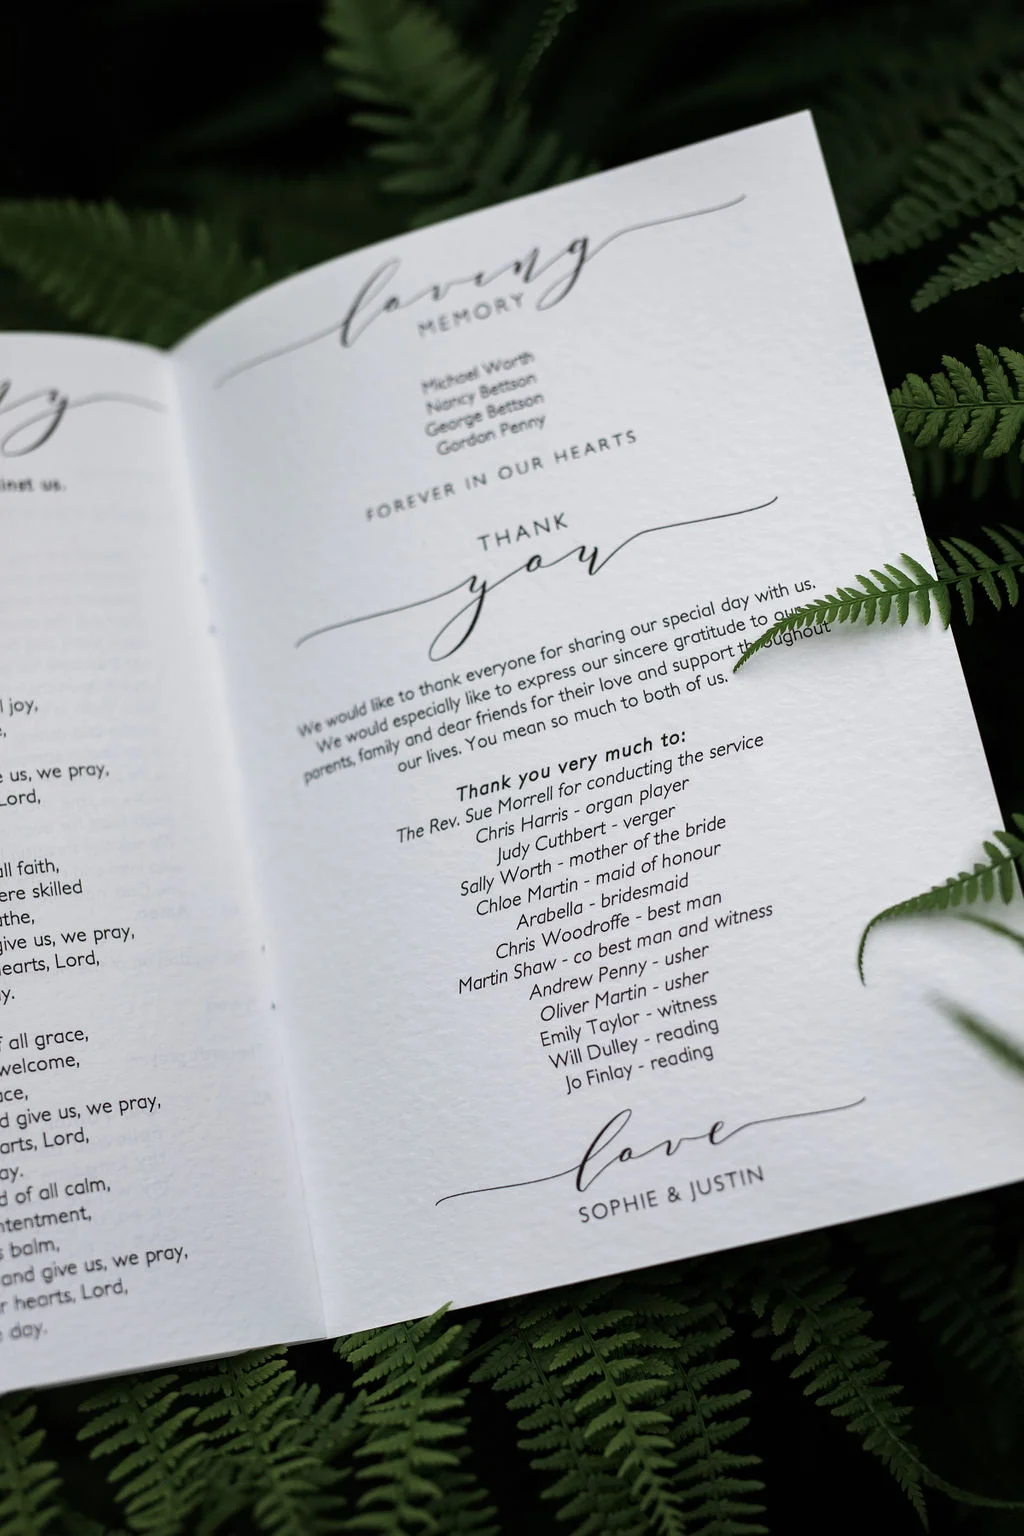 inst us.
l joy,
e,
e us, we pray,
Lord,
all faith,
ere skilled
athe,
give us, we pray,
earts, Lord,
y.
f all grace,
welcome,
ace,
d give us, we pray,
arts, Lord,
ay.
d of all calm,
ntentment,
s balm,
and give us, we pray,
r hearts, Lord,
day.
loving
MEMORY
Michael Worth
Nancy Bettson
George Bettson
Gordon Penny
FOREVER IN OUR HEARTS
THANK
you
We would like to thank everyone for sharing our special day with us.
We would especially like to express our sincere gratitude to our
parents, family and dear friends for their love and support throughout
our lives. You mean so much to both of us.
Thank you very much to:
The Rev. Sue Morrell for conducting the service
Chris Harris - organ player
Judy Cuthbert - verger
Sally Worth - mother of the bride
Chloe Martin - maid of honour
Arabella - bridesmaid
Chris Woodroffe - best man
Martin Shaw - co best man and witness
Andrew Penny - usher
Oliver Martin - usher
Emily Taylor - witness
Will Dulley - reading
Jo Finlay - reading
love
SOPHIE & JUSTIN